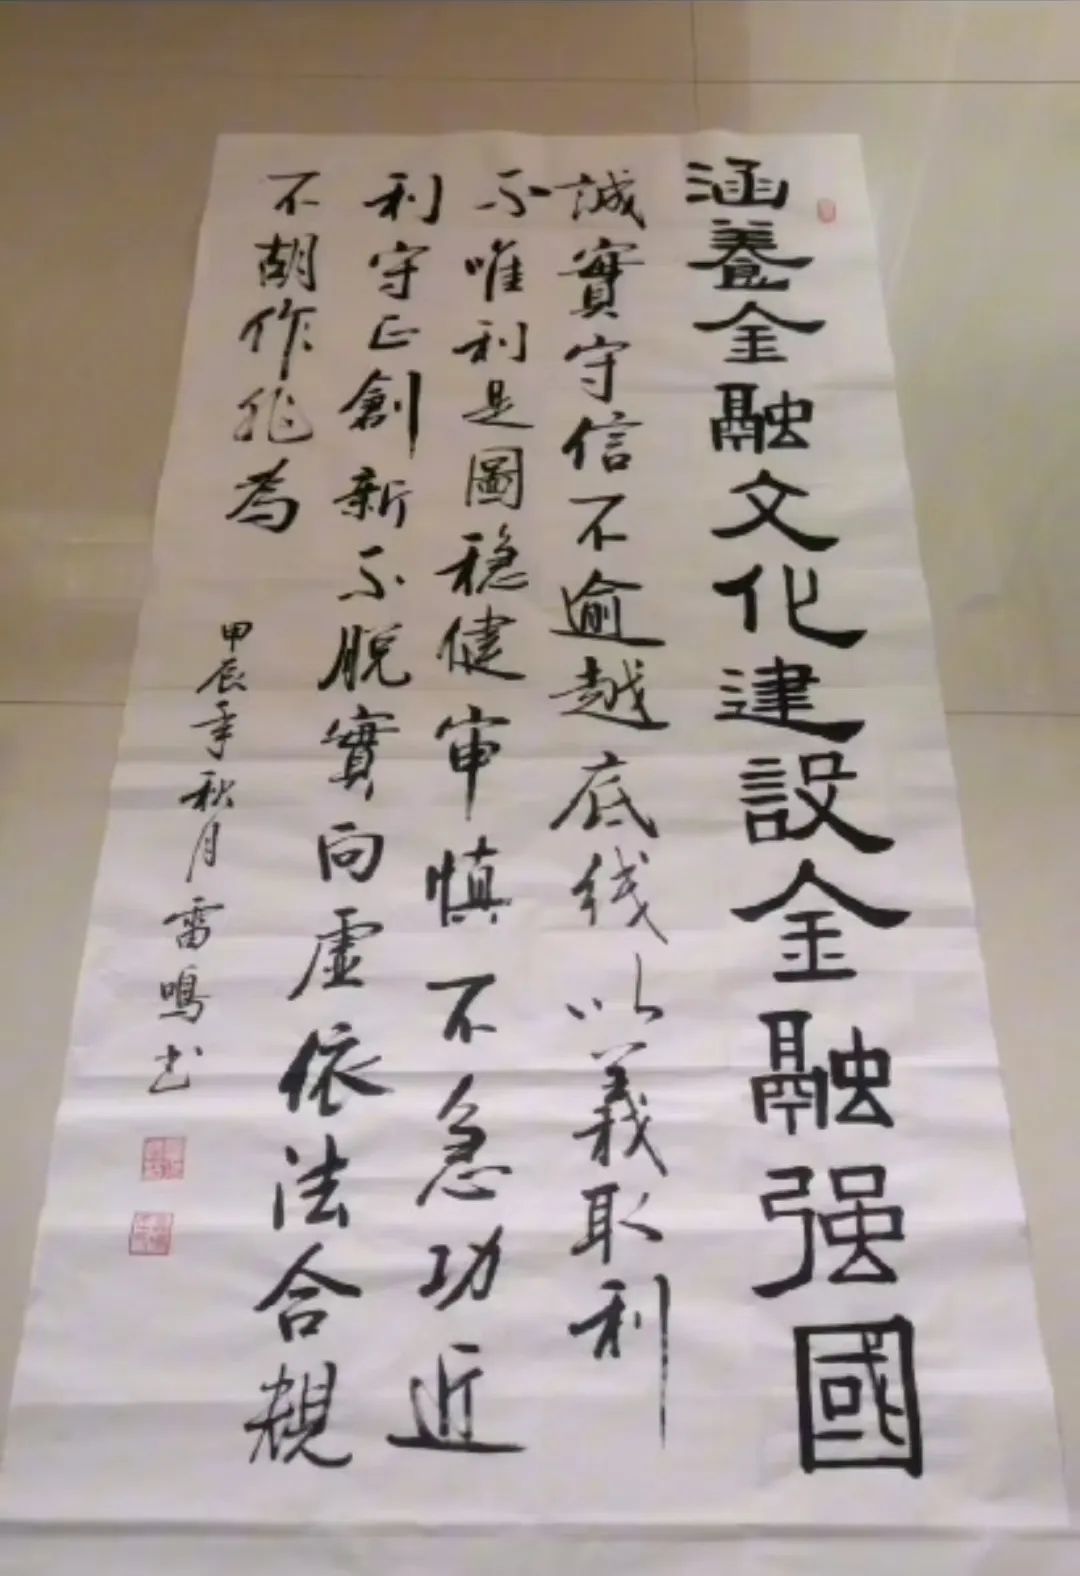 涵養金融文化建設金融强國
誠實守信不逾越底线以義取利
不唯利是圖稳健审慎不急功近
利守正創新不脱實向虚依法合規
不胡作非為
甲辰年秋月雷鳴书